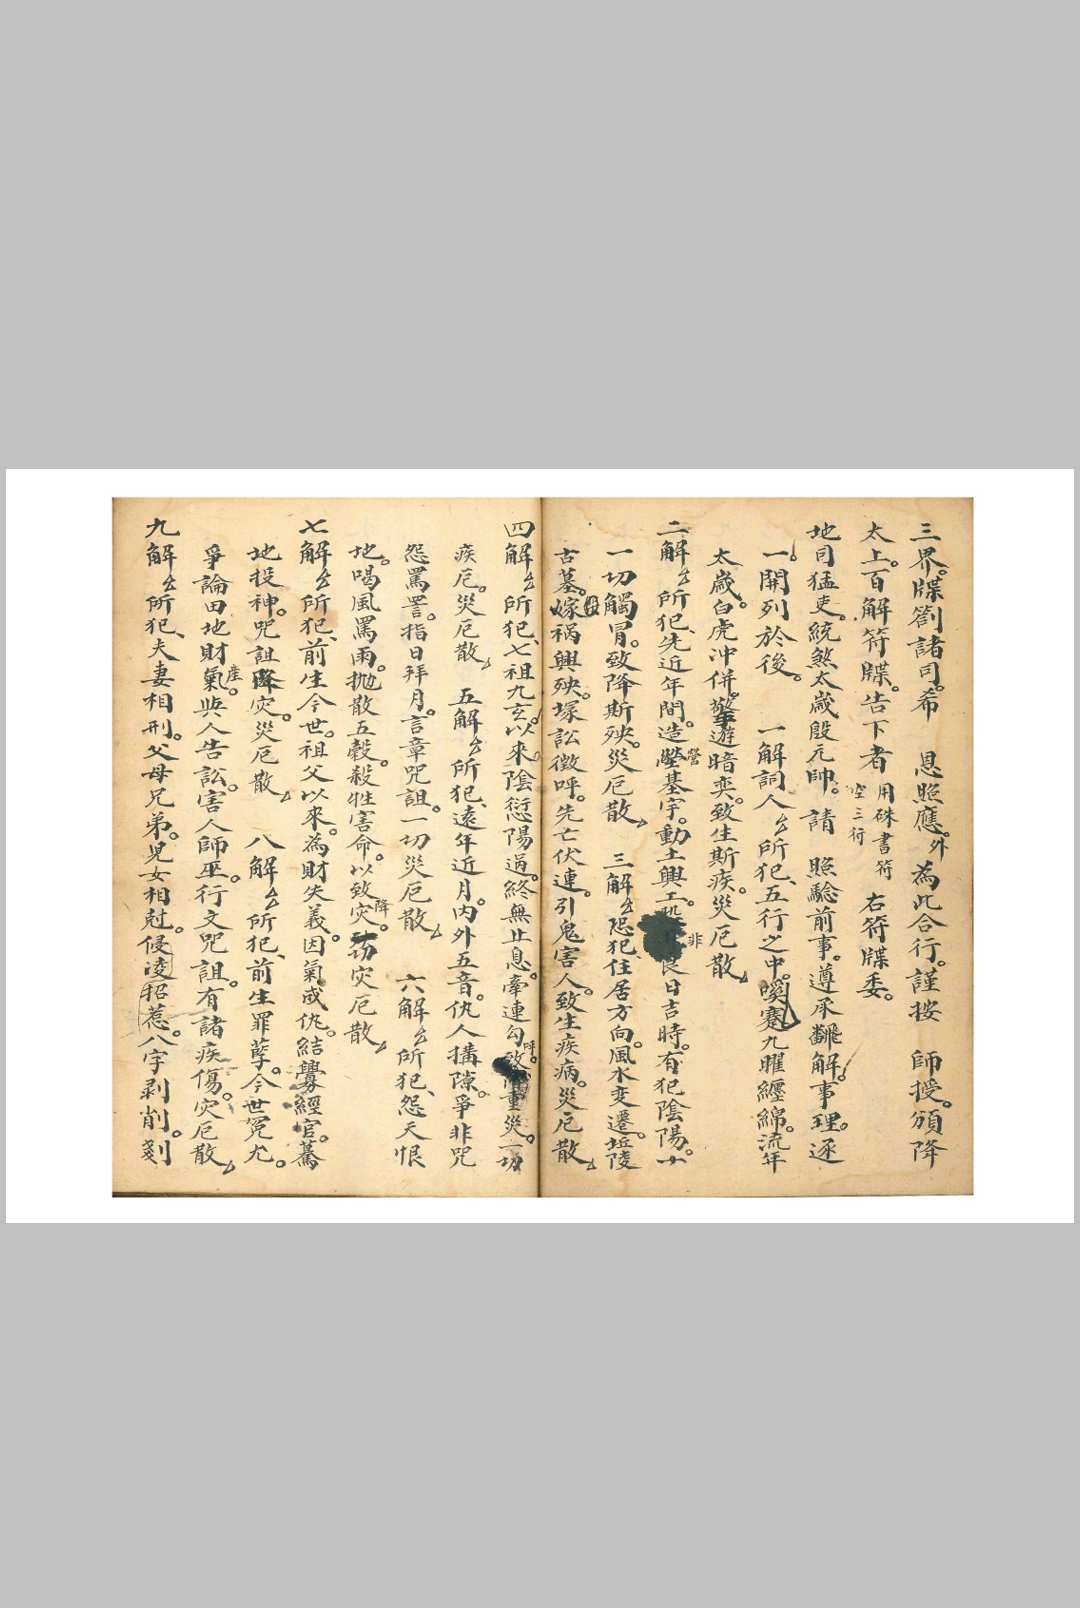 三界。牒劄諸司。希 恩照應。外為此合行。謹按 師授。頒降
太上。百解符牒。告下者 用硃書符 空三行 右符牒委。
地司猛吏。統煞太歲殷元帥。請 照驗前事。遵承翻解。事理。逐
一。開列於後。 一解詞人厶所犯、五行之中。嘆蹇九曜纏綿。流年
太歲。白虎冲併。遊暗奕。致生斯疾。災厄散
二解厶所犯、先近年間。造營基字。動土興工。非良日吉時。有犯陰陽。十
一切觸冒。致降斯殃。災厄散 三解厶恐犯、住居方向。風水变遷。坵陵
古墓。嫁禍興殃。塚訟徵呼。先亡伏連。引鬼害人。致生疾病。災厄散
四解厶所犯、七祖九玄。以來。陰愆陽過。終無止息。牽連勾呼。致重災。一切
疾厄。災厄散 五解厶所犯、遠年近月。内外五音。仇人搆隙。爭非咒
怨罵詈。指日拜月。言章咒詛。一切災厄散 六解厶所犯、怨天恨
地。喝風罵雨。拋散五穀。殺牲害命。以致灾降。一切灾厄散
七解厶所犯、前生今世。祖父以來。為財失義。因氣成仇。結釁經官。驀
地投神。咒詛降灾。災厄散 八解厶所犯、前生罪孽。今世冤尤。
爭論田地財産。與人告訟。害人師巫。行文咒詛。有諸疾傷。灾厄散
九解厶所犯、夫妻相刑。父母兄弟。兒女相尅。侵凌招惹。八字剥削。剗